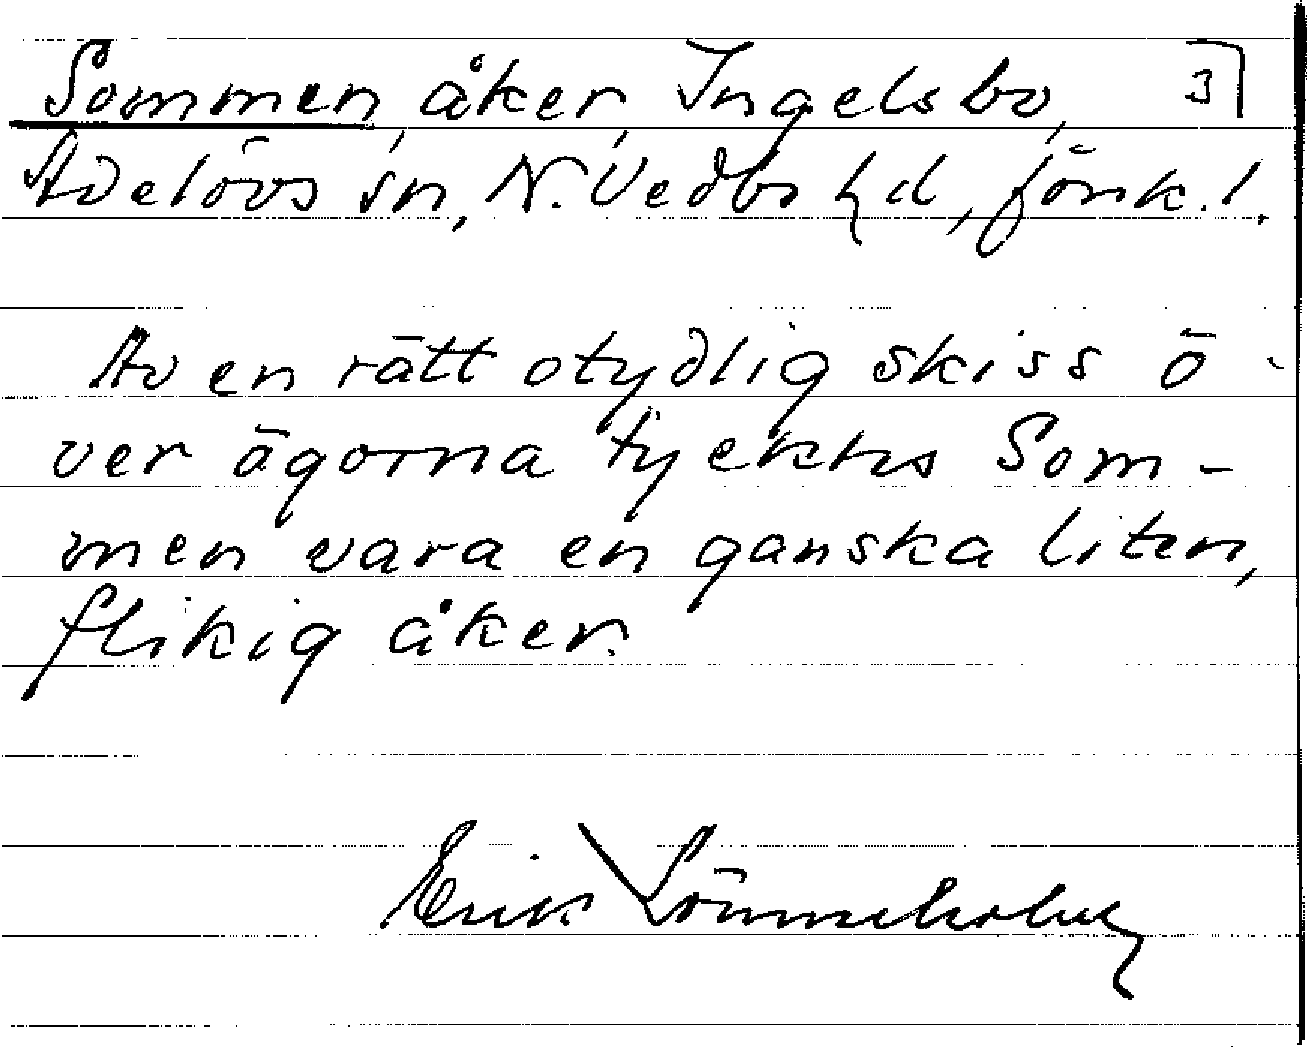 Sommen, åker, Ingelsbo, 3
Adelövs sn, N. Vedbo hd, Jönk. l.
Av en rätt otydlig skiss ö-
ver ägorna tycktes Som-
men vara en ganska liten,
flikig åker.
Erik Lönneholm